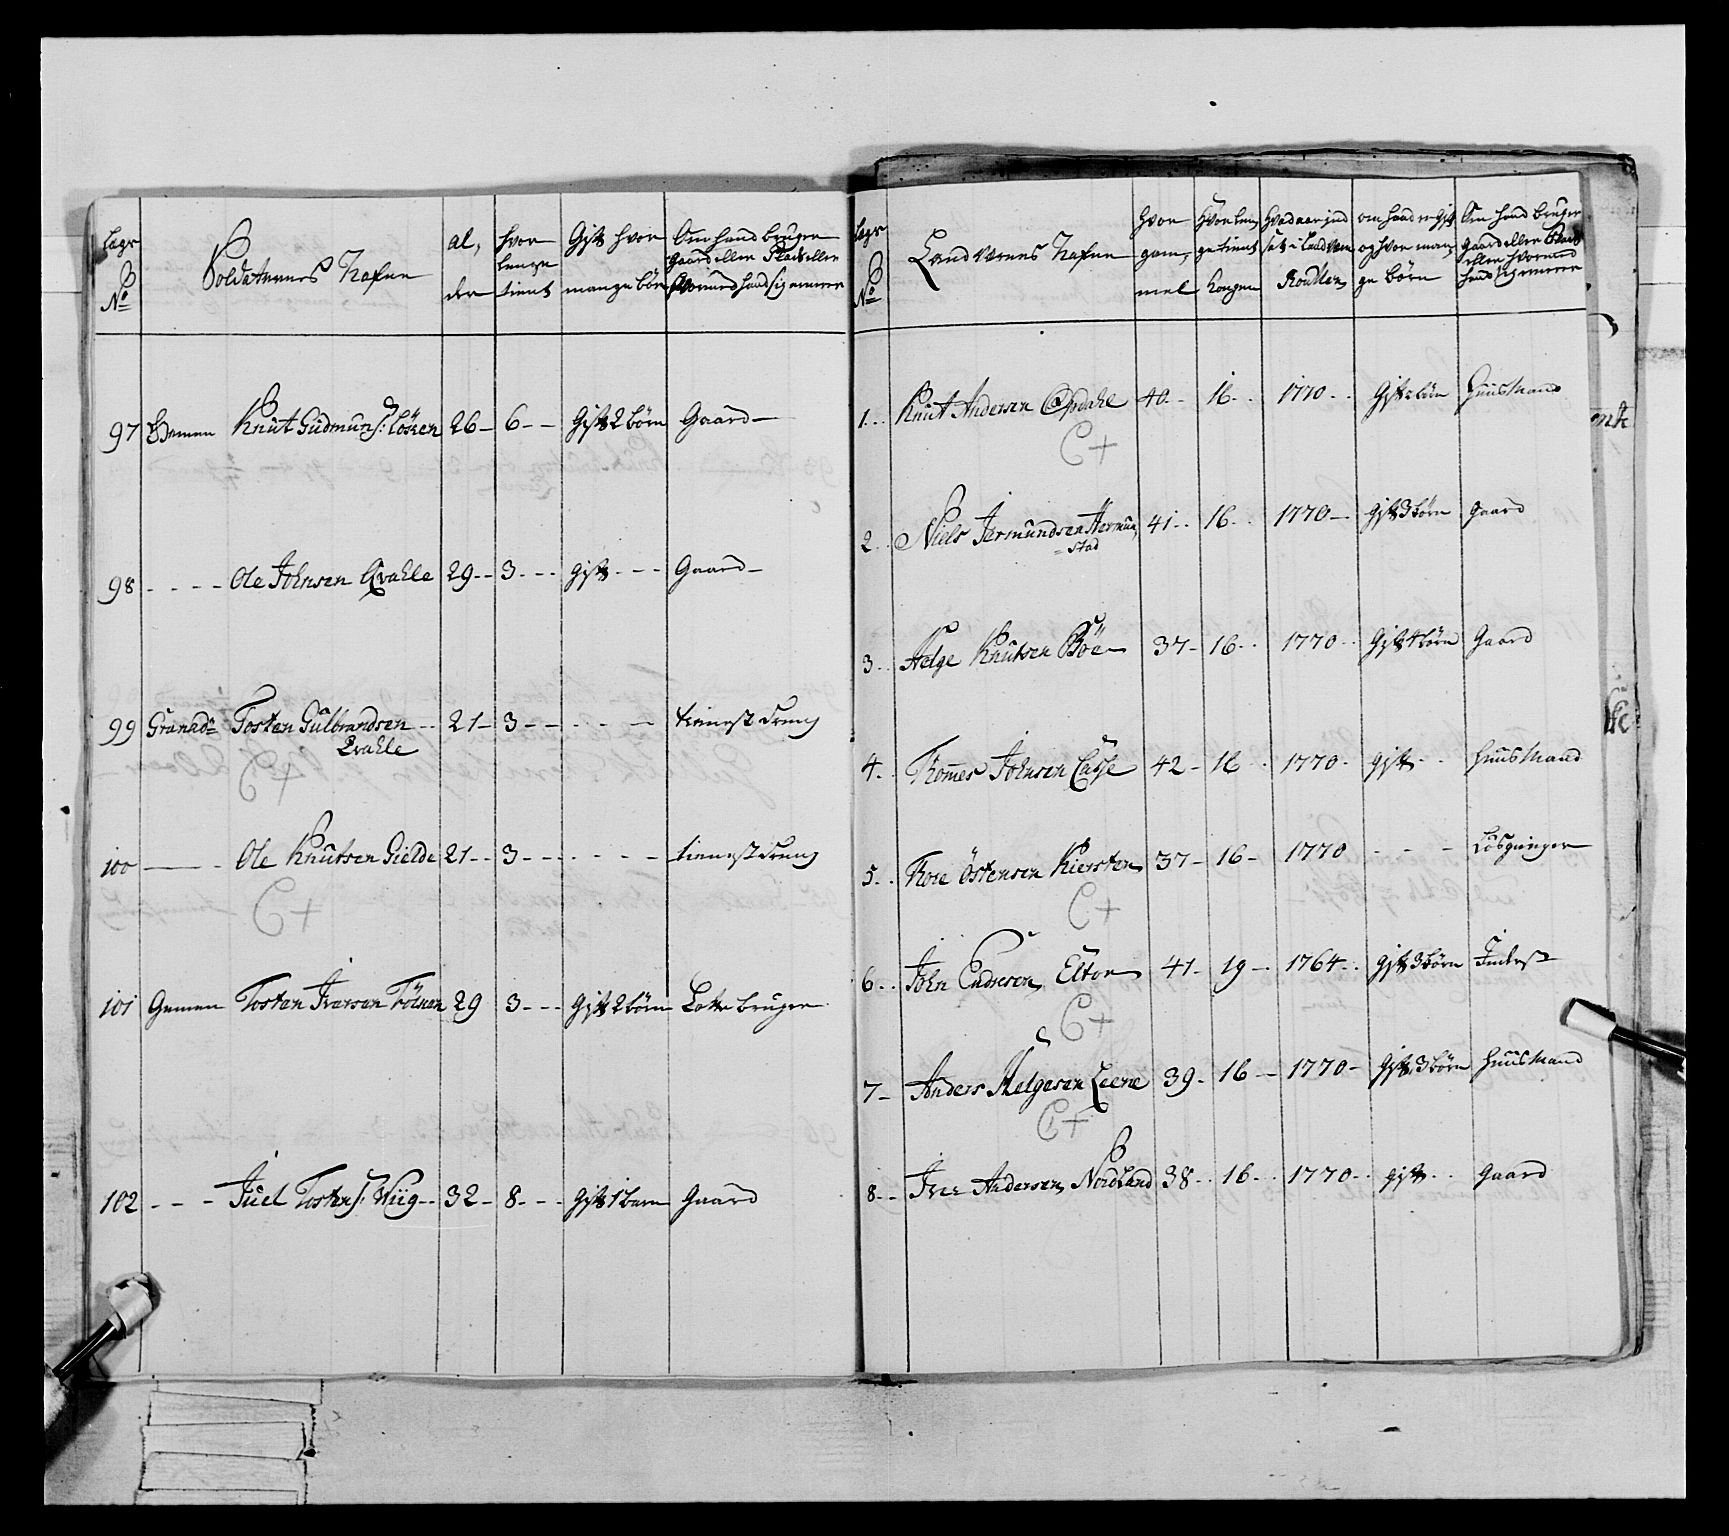 Lægs No
Soldaternes Nafne
al, der
hvor lenge tient
Gift hvor mange børn
Om hand bruger Gaard eller Plads eller hvormed hand sig ernerer
97 Gemen Knut Gudmuns: Løken 26 - 6 - - Gift 2 børn Gaard -
98 - - - - Ole Johnsen Qvahle 29 - - 3 - - - gift - - - Gaard -
99 Granadr Tosten Gulbrandsen - - 21 - 3 - - - - - tienestdreng
Qvahle
100 - Ole Knutsen Gielde 21 - - 3 - - - - - - - tienestdreng
C+
101 Gemen Tosten Iversen 29 3 - - - Gift 2 børn bruger
102 - - - Juel Tostens: Wiig - - 32 - 8 - - - Gift 1 barn Gaard
Lægs No
Land Værnes Nafne
hvor gam, mel
Hvor len, ge tient Kongen
Hvad aar ind sat i Landværn Roullen
om hand er gift og hvor man, ge børn
Om hand bruger gaard eller Plads eller hvormed hand sig ernerer
1 . . Knut Andersen Opdahl 40 - . 16 . . 1770 . . gift børn Huusmand
C+
2 . . Niels Jermundsen Hermun, 41 . . 16 . . 1770 - . gift 3 børn gaard
= stad
3 . . Helge Knutsen Böe - 37 - 16 . . 1770 . . gift 4 børn Gaard
4 . . Tomes Johnsen 42 - 16 . 1770 . gift . . Huusmand
5 . . Tore Östensen Kiersten 37 - 16 - 1770 - - - Løsgienger
C+
6 . . John Endresen Elton 41 - 19 - . 1764 . . gift 3 børn Inderst
C+
7 - Anders Helgesen Leene 39 - 16 - - 1770 - gift 3 børn Huusmand
C+
8 - - Iver Andersen Nordland 38 . . 16 . . 1770 . . gift . . gaard